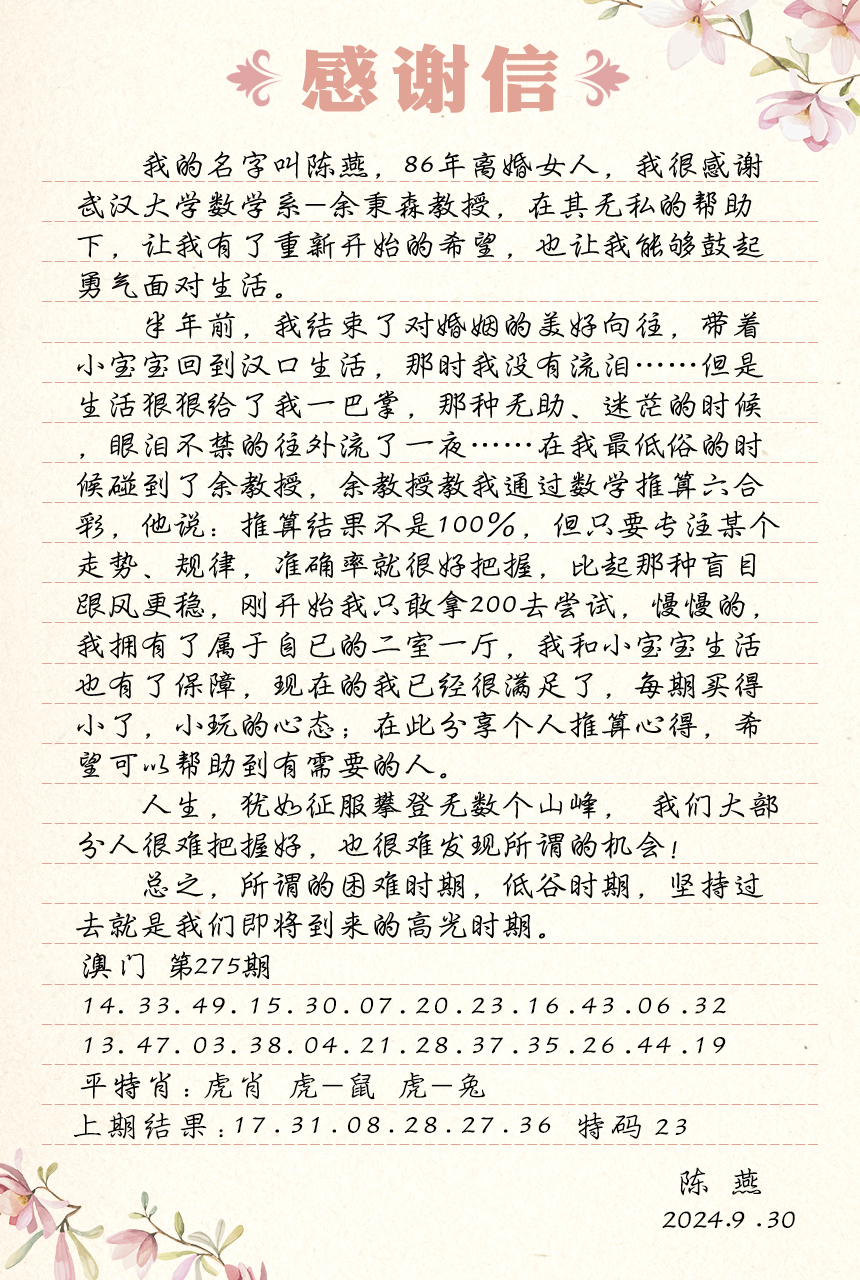 感谢信
我的名字叫陈燕，86年离婚女人，我很感谢
武汉大学数学系—余秉森教授，在其无私的帮助
下，让我有了重新开始的希望，也让我能够鼓起
勇气面对生活。
半年前，我结束了对婚姻的美好向往，带着
小宝宝回到汉口生活，那时我没有流泪……但是
生活狠狠给了我一巴掌，那种无助、迷茫的时候
，眼泪不禁的往外流了一夜……在我最低俗的时
候碰到了余教授，余教授教我通过数学推算六合
彩，他说：推算结果不是100%，但只要专注某个
走势、规律，准确率就很好把握，比起那种盲目
跟风更稳，刚开始我只敢拿200去尝试，慢慢的，
我拥有了属于自已的二室一厅，我和小宝宝生活
也有了保障，现在的我已经很满足了，每期买得
小了，小玩的心态；在此分享个人推算心得，希
望可以帮助到有需要的人。
人生，犹如征服攀登无数个山峰， 我们大部
分人很难把握好，也很难发现所谓的机会！
总之，所谓的困难时期，低谷时期，坚持过
去就是我们即将到来的高光时期。
澳门 第275期
14.33.49.15.30.07.20.23.16.43.06.32
13.47.03.38.04.21.28.37.35.26.44.19
平特肖：虎肖 虎—鼠 虎—兔
上期结果：17.31.08.28.27.36 特码 23
陈 燕
2024.9.30